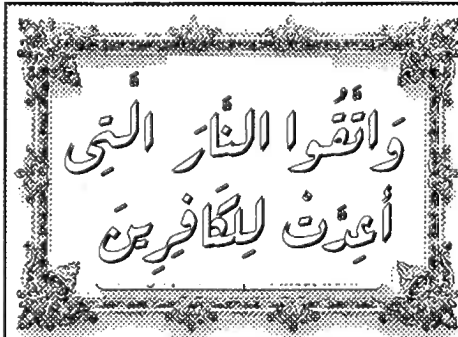 وَاتَّقُوا النَّارَ الَّتِى
أُعِدَّتْ لِلكَافِرِينَ